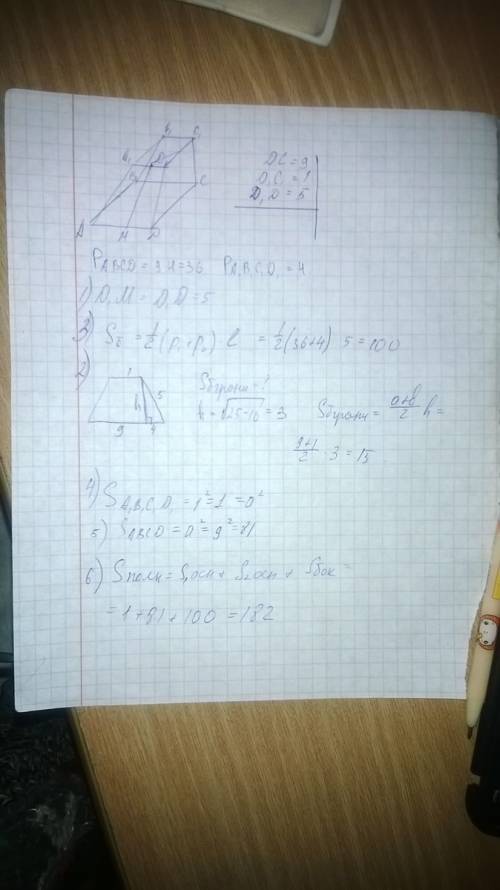 B₁ C₁
A₁ D₁
B C
A M D
DC = 9
D₁C₁ = 1
D₁D = 5
P ABCD = 9·4 = 36 P A₁B₁C₁D₁ = 4
1) D₁M = D₁D = 5
3) Sб = 1/2 (P₁ + P₂) l = 1/2 (36+4) 5 = 100
2)
1
h 5
9 4
Sб грани = ?
h = √25-16 = 3
Sб грани = a+b/2 h =
9+1/2 · 3 = 15
4) S A₁B₁C₁D₁ = 1² = 1 = a²
5) S ABCD = a² = 9² = 81
6) Sполн = S₁осн + S₂осн + Sбок =
= 1 + 81 + 100 = 182